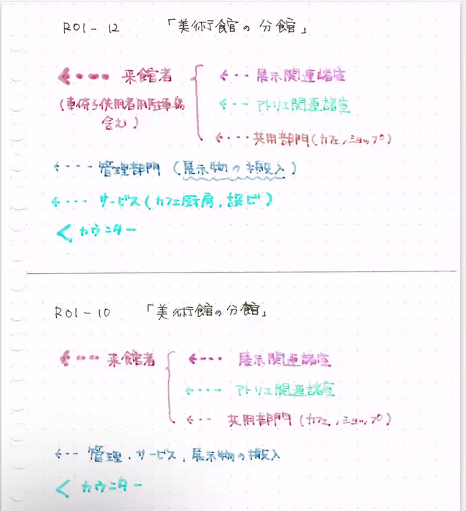 R01-12 「美術館の分館」
←… 来館者 { ←… 展示関連諸室
(車椅子使用者用駐車場含む)
←… アトリエ関連諸室
←… 共用部門(カフェ,ショップ)
←… 管理部門(展示物の搬入)
←… サービス(カフェ厨房,設ビ)
< カウンター
R01-10 「美術館の分館」
←… 来館者 { ←… 展示関連諸室
←… アトリエ関連諸室
←… 共用部門(カフェ,ショップ)
←… 管理,サービス,展示物の搬入
< カウンター